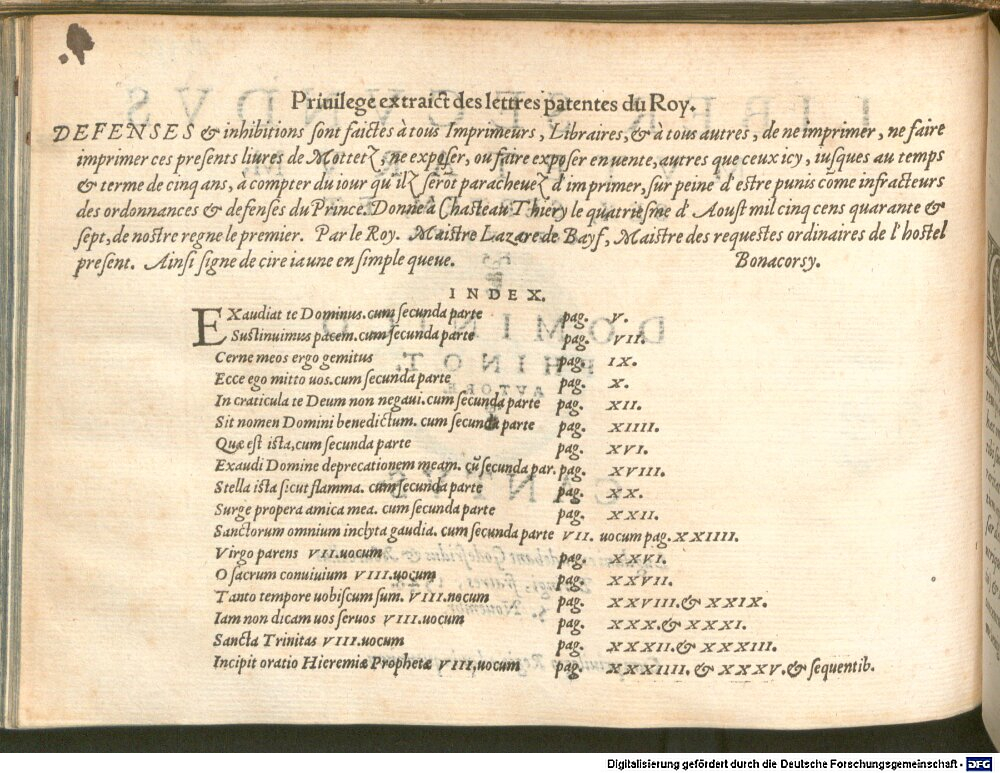 Priuilege extraict des lettres patentes du Roy.
DEFENSES & inhibitions sont faictes à tous Imprimeurs, Libraires, & à tous autres, de ne imprimer, ne faire
imprimer ces presents liures de Mottetz, ne exposer, ou faire exposer en vente, autres que ceux icy, iusques au temps
& terme de cinq ans, a compter du iour qu'ilz serōt paracheuez d'imprimer, sur peine d'estre punis cōme infracteurs
des ordonnances & defenses du Prince. Donne à Chasteau Thiery le quatriesme d'Aoust mil cinq cens quarante &
sept, de nostre regne le premier. Par le Roy. Maistre Lazare de Bayf, Maistre des requestes ordinaires de l'hostel
present. Ainsi signe de cire iaune en simple queue. Bonacorsy.
INDEX.
EXaudiat te Dominus. cum secunda parte pag. V.
Sustinuimus pacem. cum secunda parte pag. VII.
Cerne meos ergo gemitus pag. IX.
Ecce ego mitto uos. cum secunda parte pag. X.
In craticula te Deum non negaui. cum secunda parte pag. XII.
Sit nomen Domini benedictum. cum secunda parte pag. XIIII.
Quæ est ista, cum secunda parte pag. XVI.
Exaudi Domine deprecationem meam. cū secunda par. pag. XVIII.
Stella ista sicut flamma. cum secunda parte pag. XX.
Surge propera amica mea. cum secunda parte pag. XXII.
Sanctorum omnium inclyta gaudia. cum secunda parte VII. uocum pag. XXIIII.
Virgo parens VII. uocum pag. XXVI.
O sacrum conuiuium VIII. uocum pag. XXVII.
Tanto tempore uobiscum sum. VIII. uocum pag. XXVIII. & XXIX.
Iam non dicam uos seruos VIII. uocum pag. XXX. & XXXI.
Sancta Trinitas VIII. uocum pag. XXXII. & XXXIII.
Incipit oratio Hieremiæ Prophetæ VIII. uocum pag. XXXIIII. & XXXV. & sequentib.
Digitalisierung gefördert durch die Deutsche Forschungsgemeinschaft - DFG